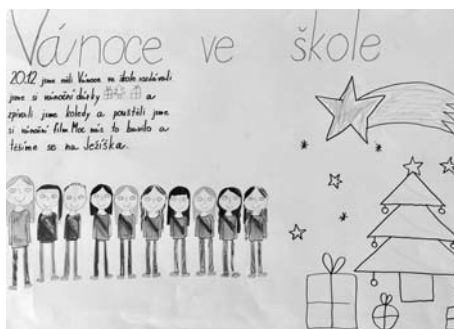 Vánoce ve škole
20.12 jsme měli Vánoce ve škole rozdávali
jsme si vánoční dárky a
zpívali jsme koledy a pouštěli jsme
si vánoční film. Moc nás to bavilo a
těšíme se na Ježíška.